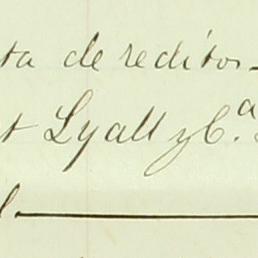 ta de reditos-
t Lyall y Cª.
l